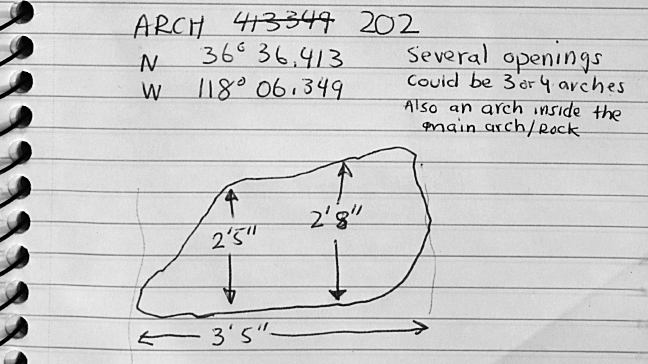 ARCH 413349 202
N 36° 36.413
W 118° 06.349
Several openings
Could be 3 or 4 arches
Also an arch inside the
main arch/Rock
2'5"
2'8"
3'5"